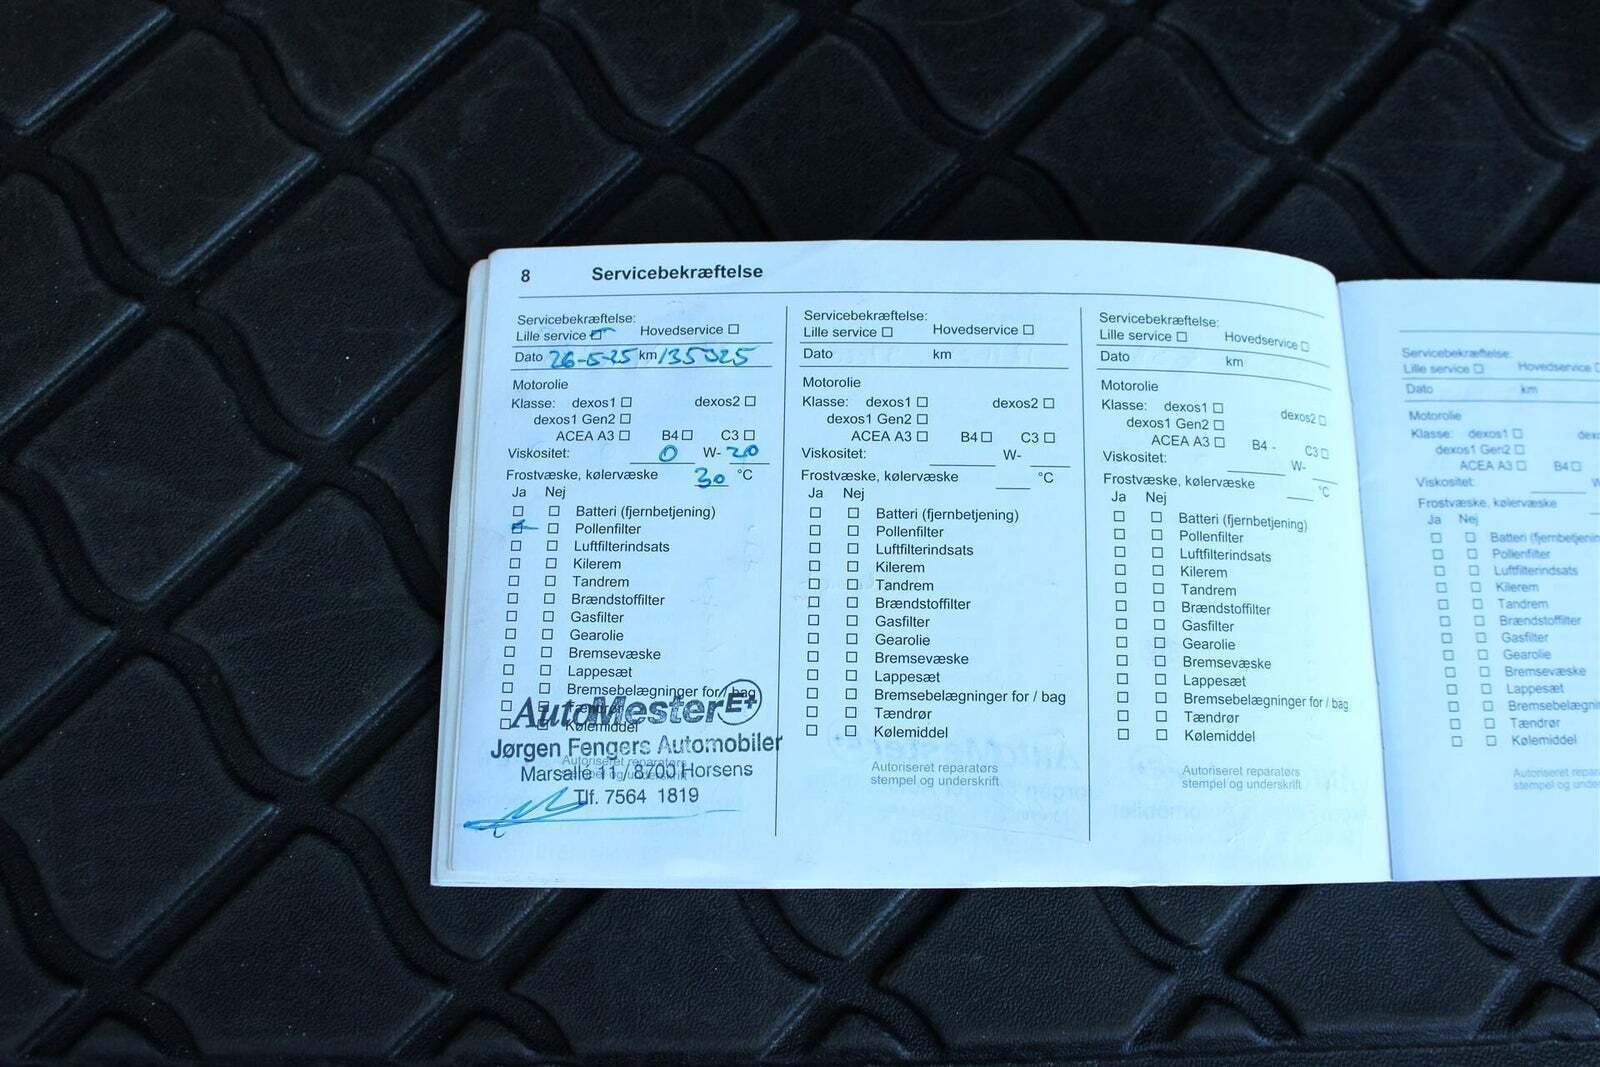 8 Servicebekræftelse
Servicebekræftelse:
Lille service Hovedservice
Dato 26-5-25 km 135025
Motorolie
Klasse: dexos1 dexos2
dexos1 Gen2
ACEA A3 B4 C3
Viskositet: 0 W- 20
Frostvæske, kølervæske 30 °C
Ja Nej
Batteri (fjernbetjening)
Pollenfilter
Luftfilterindsats
Kilerem
Tandrem
Brændstoffilter
Gasfilter
Gearolie
Bremsevæske
Lappesæt
Bremsebelægninger for / bag
Tændrør
Kølemiddel
AutoMester E+
Jørgen Fengers Automobiler
Autoriseret reparatørs
Marsallé 11 / 8700 Horsens
stempel og underskrift
Tlf. 7564 1819
Servicebekræftelse:
Lille service Hovedservice
Dato km
Motorolie
Klasse: dexos1 dexos2
dexos1 Gen2
ACEA A3 B4 C3
Viskositet: W-
Frostvæske, kølervæske °C
Ja Nej
Batteri (fjernbetjening)
Pollenfilter
Luftfilterindsats
Kilerem
Tandrem
Brændstoffilter
Gasfilter
Gearolie
Bremsevæske
Lappesæt
Bremsebelægninger for / bag
Tændrør
Kølemiddel
Autoriseret reparatørs
stempel og underskrift
Servicebekræftelse:
Lille service Hovedservice
Dato km
Motorolie
Klasse: dexos1 dexos2
dexos1 Gen2
ACEA A3 B4 - C3
Viskositet: W-
Frostvæske, kølervæske °C
Ja Nej
Batteri (fjernbetjening)
Pollenfilter
Luftfilterindsats
Kilerem
Tandrem
Brændstoffilter
Gasfilter
Gearolie
Bremsevæske
Lappesæt
Bremsebelægninger for / bag
Tændrør
Kølemiddel
Autoriseret reparatørs
stempel og underskrift
Servicebekræftelse:
Lille service Hovedservice
Dato km
Motorolie
Klasse: dexos1
dexos1 Gen2
ACEA A3 B4
Viskositet:
Frostvæske, kølervæske
Ja Nej
Batteri
Pollenfilter
Luftfilterindsats
Kilerem
Tandrem
Brændstoffilter
Gasfilter
Gearolie
Bremsevæske
Lappesæt
Tændrør
Kølemiddel
Autoriseret
stempel og